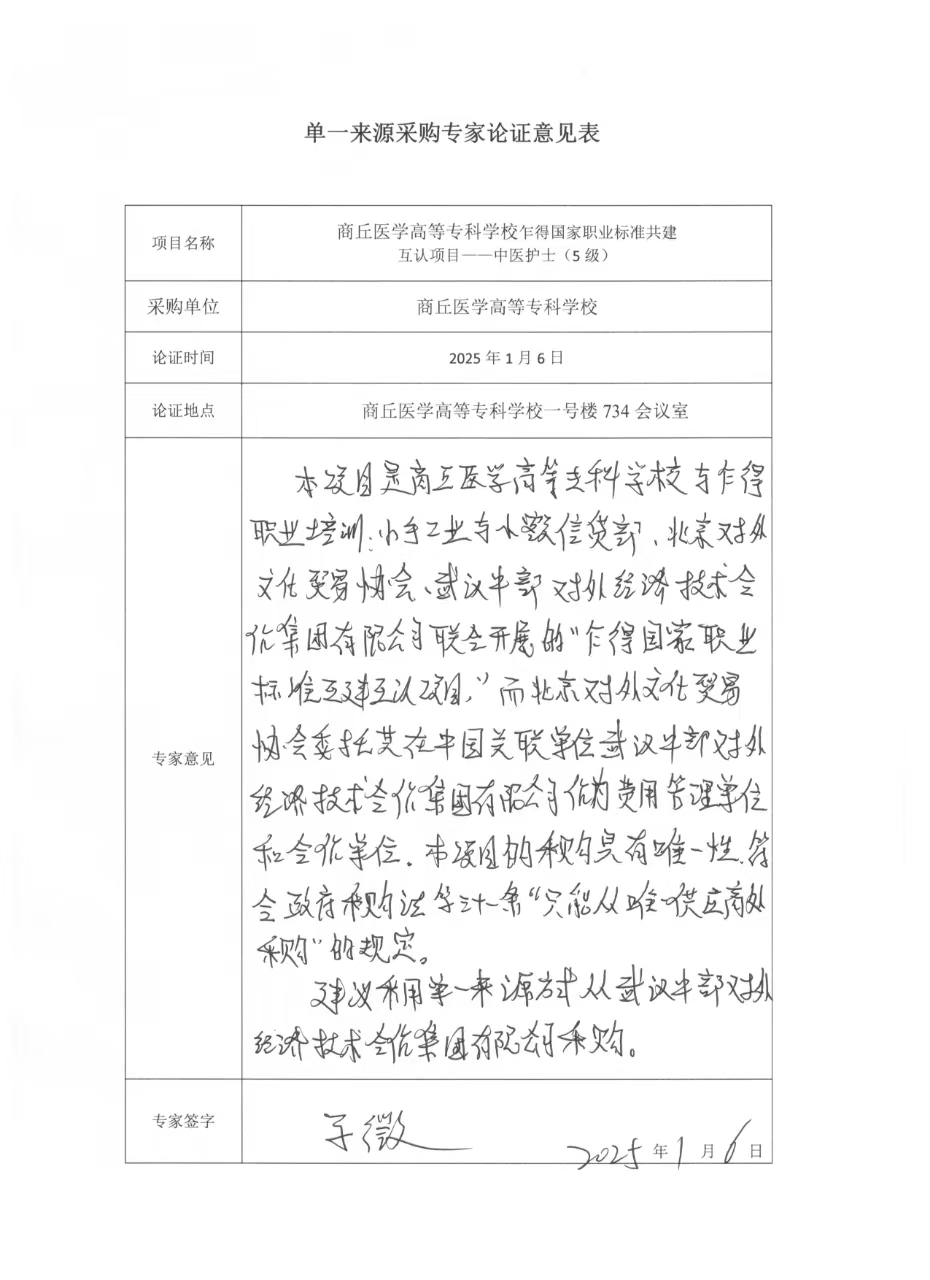 单一来源采购专家论证意见表
项目名称
商丘医学高等专科学校乍得国家职业标准共建
互认项目——中医护士（5 级）
采购单位
商丘医学高等专科学校
论证时间
2025 年 1 月 6 日
论证地点
商丘医学高等专科学校一号楼 734 会议室
专家意见
本项目是商丘医学高等专科学校与乍得
职业培训、小手工业与小额信贷部、北京对外
文化贸易协会、武汉中部对外经济技术合
作集团有限公司联合开展的“乍得国家职业
标准互建互认项目，”而北京对外文化贸易
协会委托其在中国关联单位武汉中部对外
经济技术合作集团有限公司作为费用管理单位
和合作单位。本项目的采购具有唯一性，符
合政府采购法第三十一条“只能从唯一供应商处
采购”的规定。
建议采用单一来源方式从武汉中部对外
经济技术合作集团有限公司采购。
专家签字
2025 年 1 月 6 日